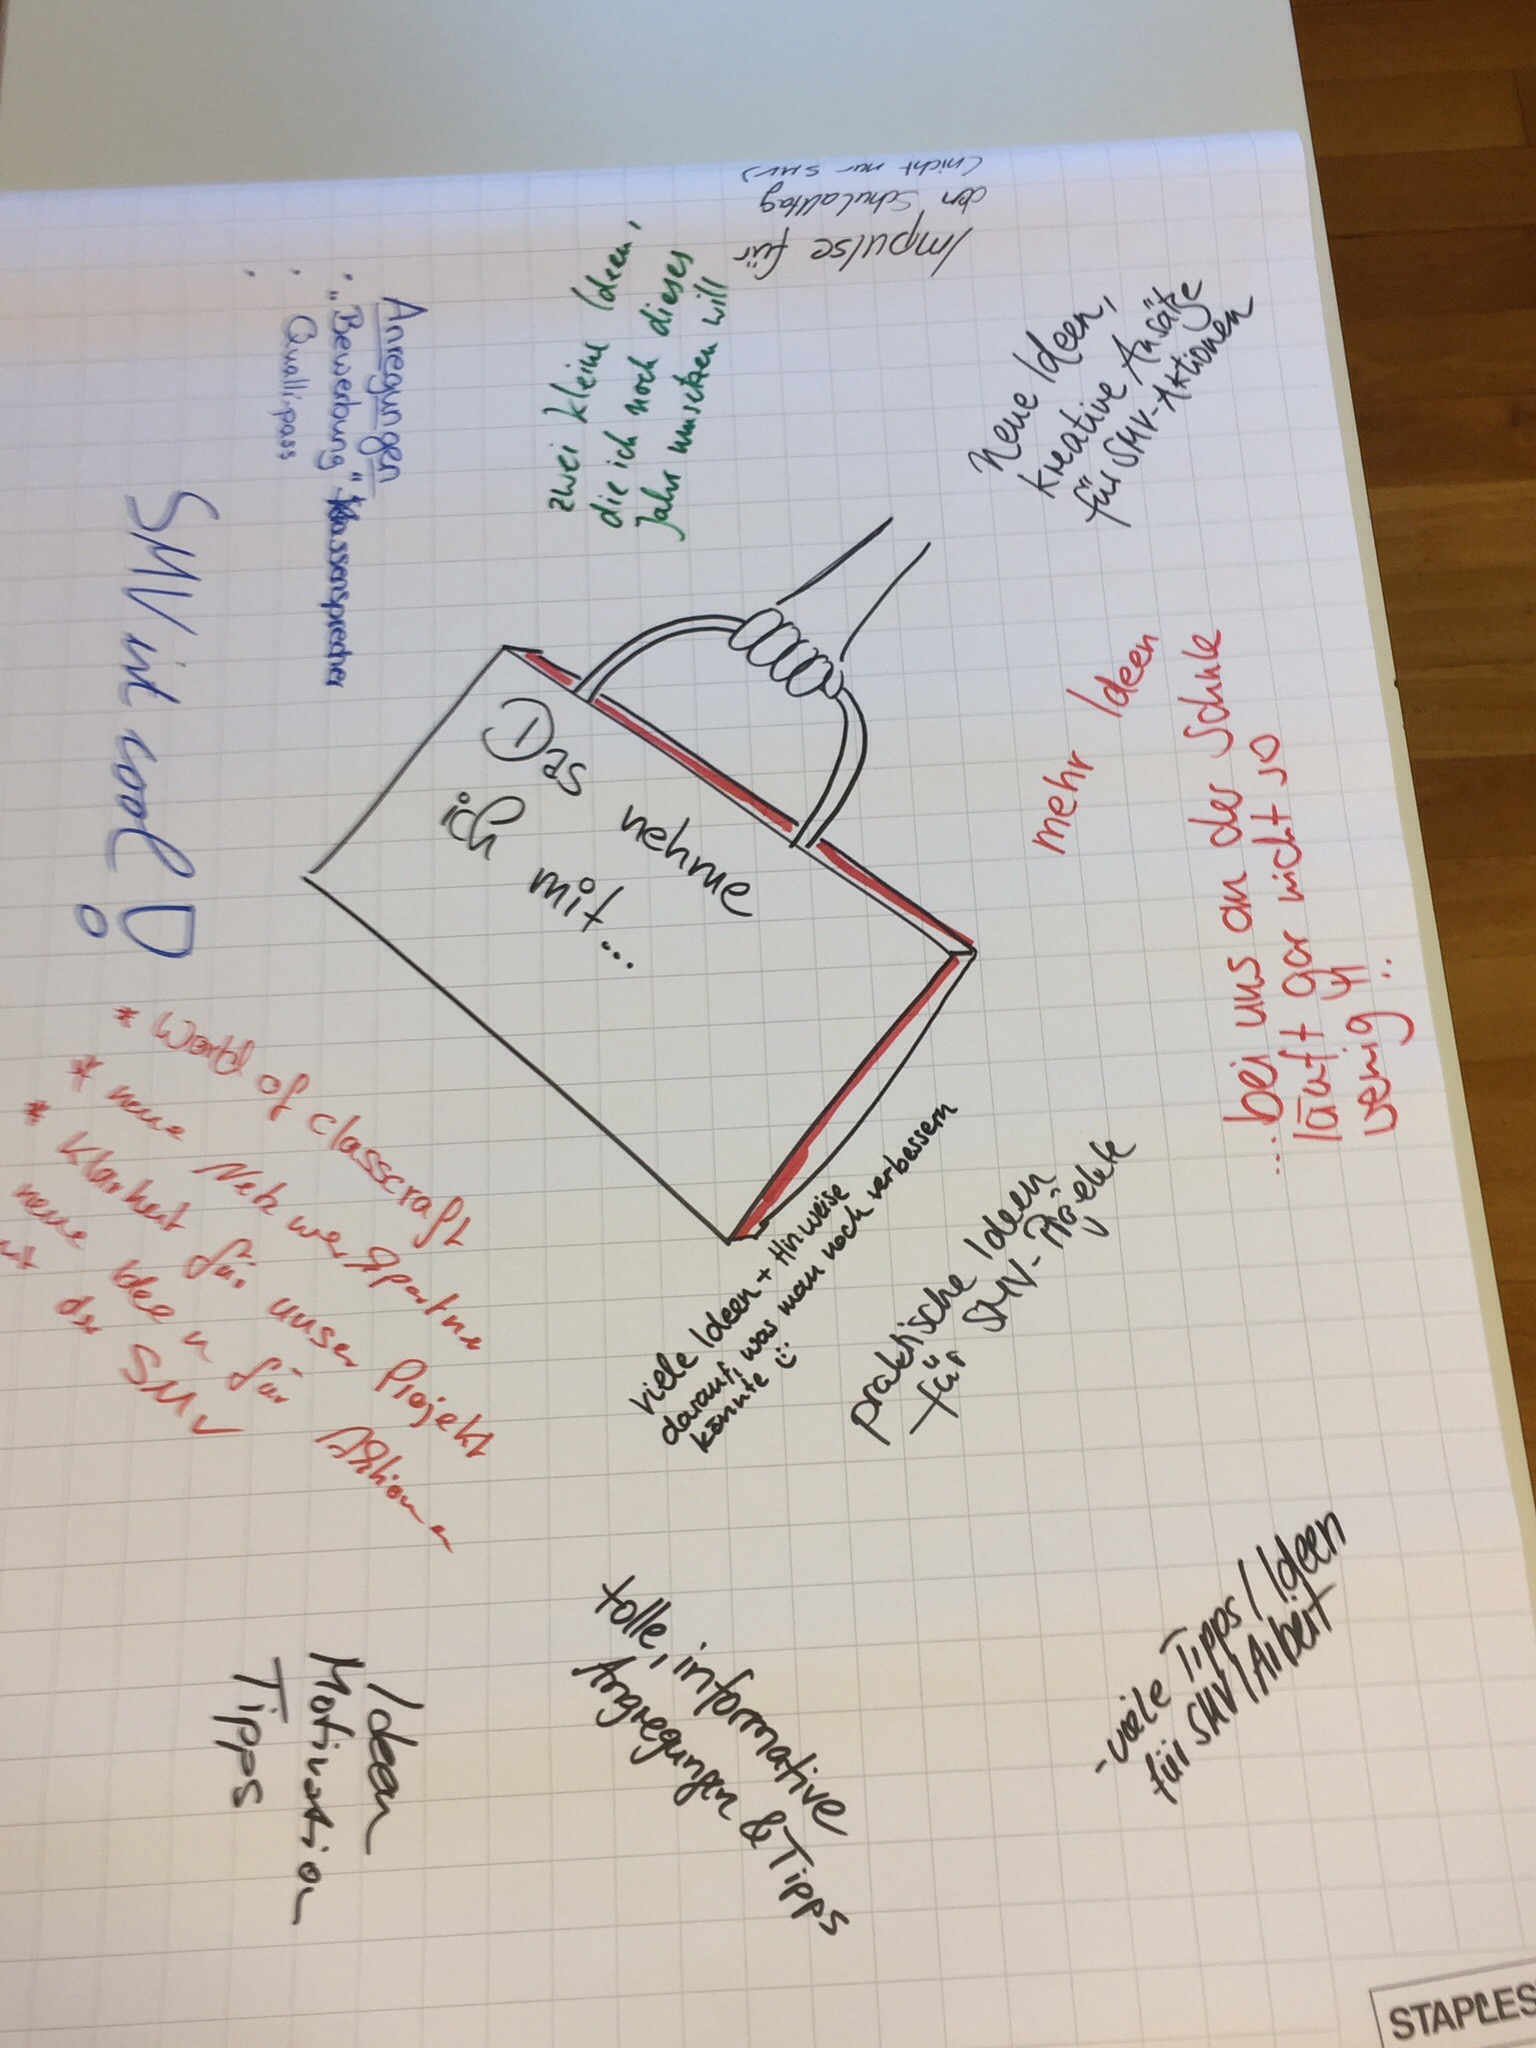 Das nehme
ich mit...
Impulse für
den Schulalltag
(nicht nur SMV)
Neue Ideen,
kreative Ansätze
für SMV-Aktionen
zwei kleine Ideen,
die ich noch dieses
Jahr umsetzen will
Anregungen
• „Bewerbung" Klassensprecher
• Qualipass
•
SMV ist cool!
mehr Ideen
...bei uns an der Schule
läuft gar nicht so
wenig
* World of classcraft
* neue Netzwerkpartner
* Klarheit für unser Projekt
neue Ideen für Aktionen
der SMV
viele Ideen + Hinweise
darauf, was man noch verbessern
könnte ☺
praktische Ideen
für SMV-Projekte
- viele Tipps / Ideen
für SMV/Arbeit
tolle, informative
Angregungen & Tipps
Ideen
Motivation
Tipps
STAPLES